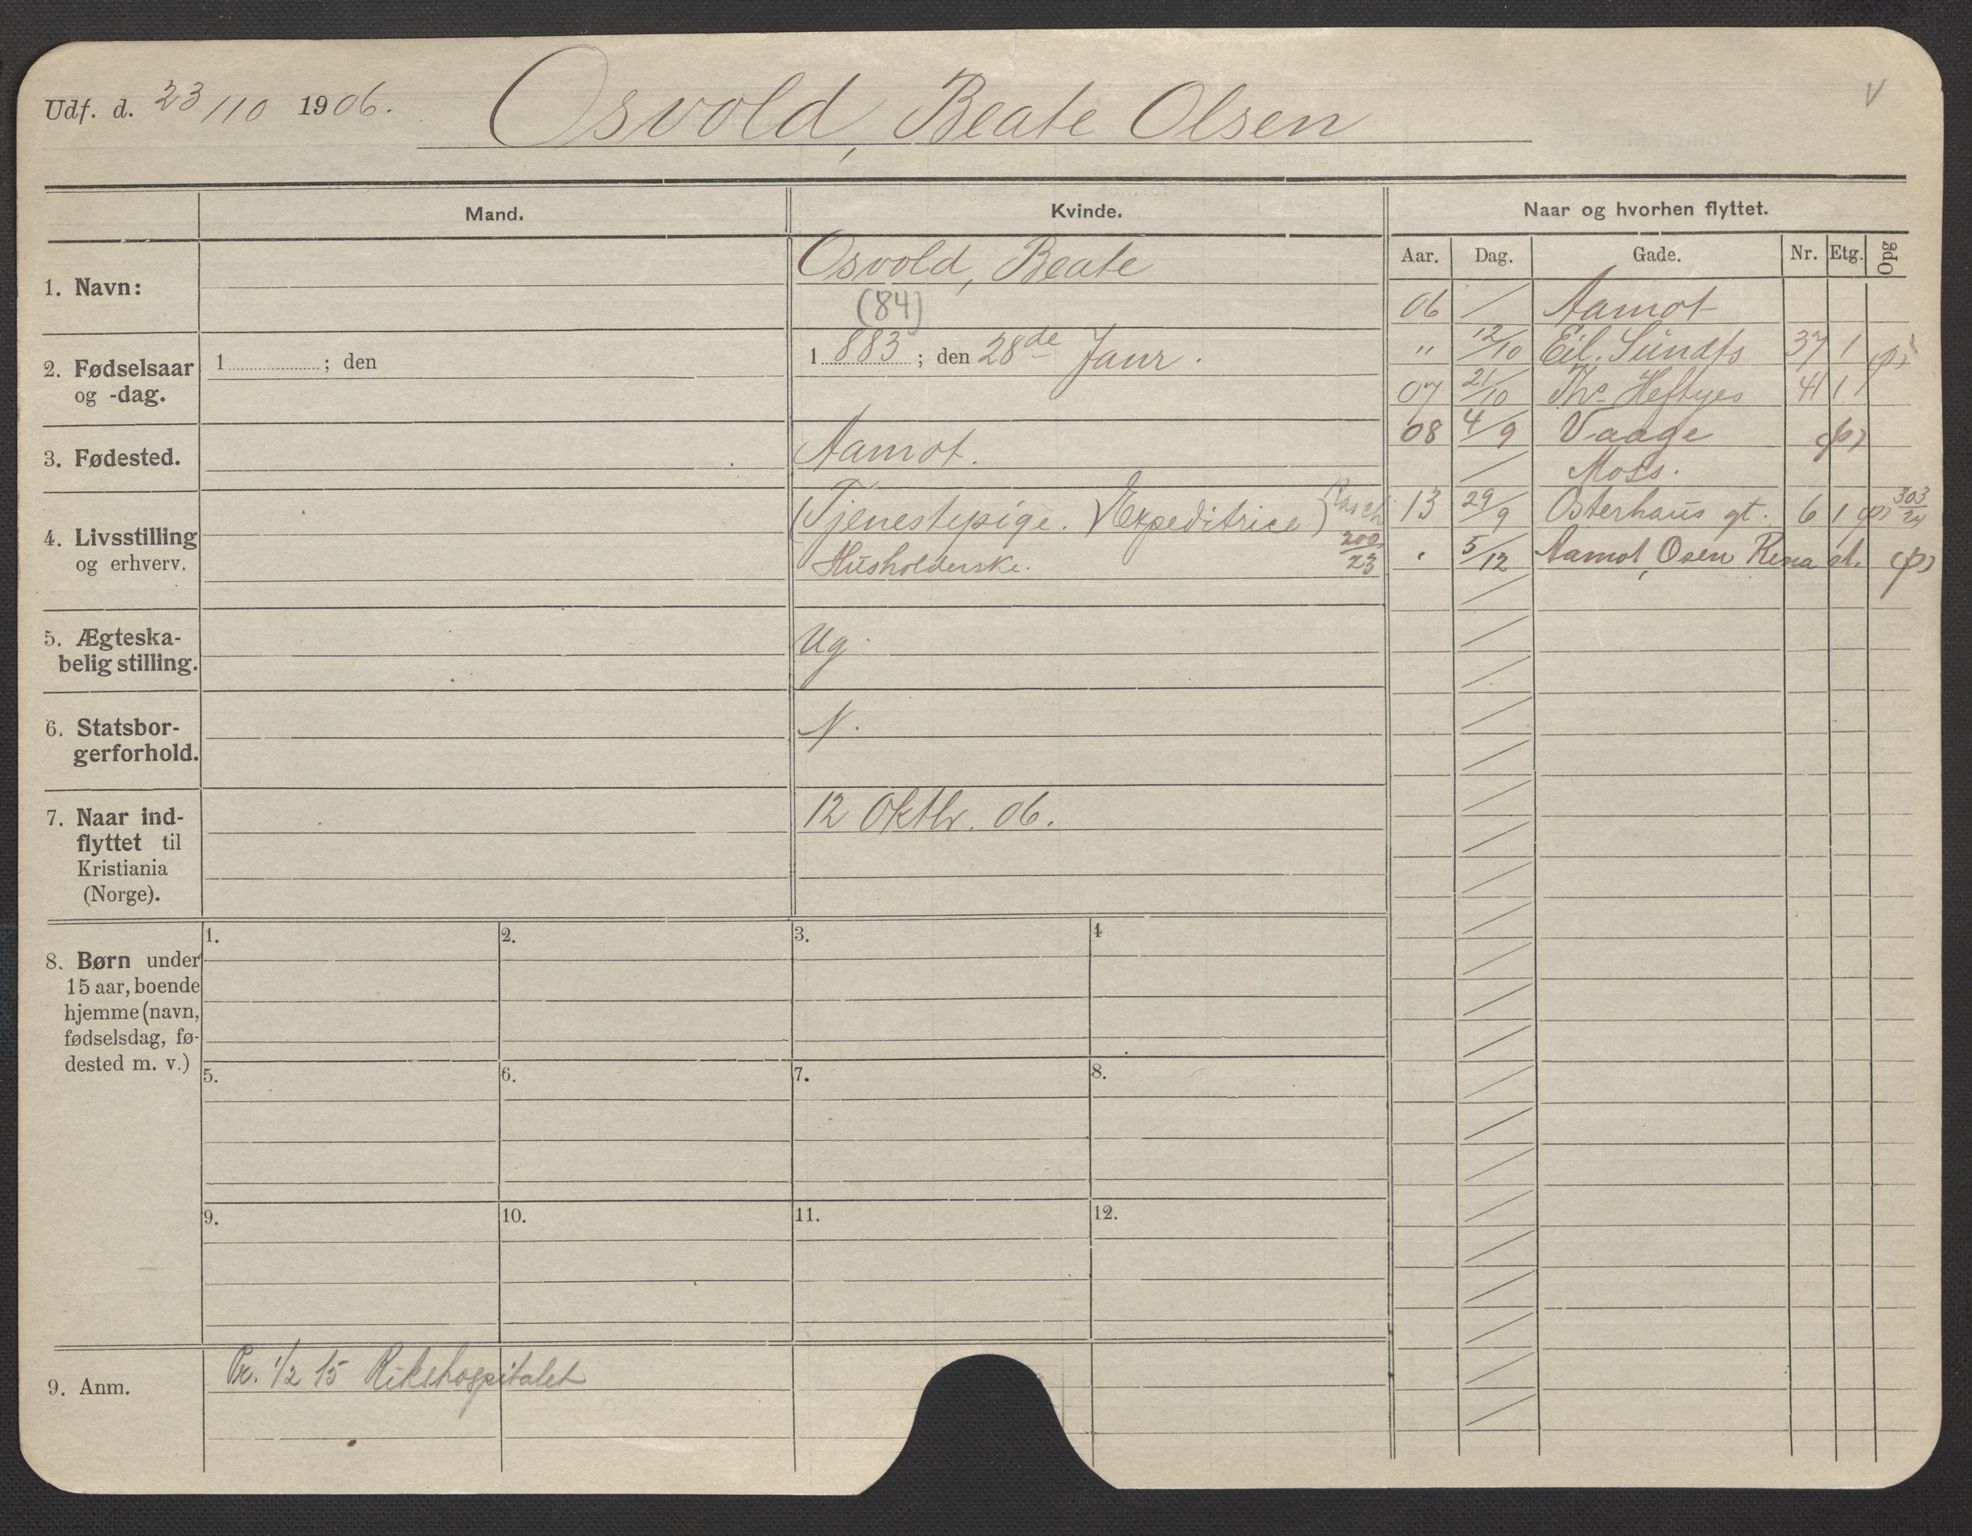 Udf. d. 23/10 1906. Osvold, Beate Olsen V
Mand. Kvinde. Naar og hvorhen flyttet.
Aar. Dag. Gade. Nr. Etg. Opg
1. Navn: Osvold, Beate
(84)
2. Fødselsaar og -dag. 1 ; den 1883 ; den 28de Janr.
3. Fødested. Aamot.
4. Livsstilling og erhverv. (Tjenestepige. Expeditrice)
Husholderske. 200/23
5. Ægteska-
belig stilling. Ug.
6. Statsbor-
gerforhold. N.
7. Naar ind-
flyttet til
Kristiania
(Norge). 12 Oktbr. 06.
06 / Aamot
" 12/10 Eil. Sundts 37 1 (p)
07 21/10 Ths Heftyes 41 1
08 4/9 Vaage (p)
/ Moss.
13 29/9 Osterhaus gt. 6 1 (p) 303/24
" 5/12 Aamot, Osen Rena st. (p)
8. Børn under
15 aar, boende
hjemme (navn,
fødselsdag, fø-
dested m. v.)
1. 2. 3. 4
5. 6. 7. 8.
9. 10. 11. 12.
9. Anm. Pr. 1/2 15 Rikshospitalet